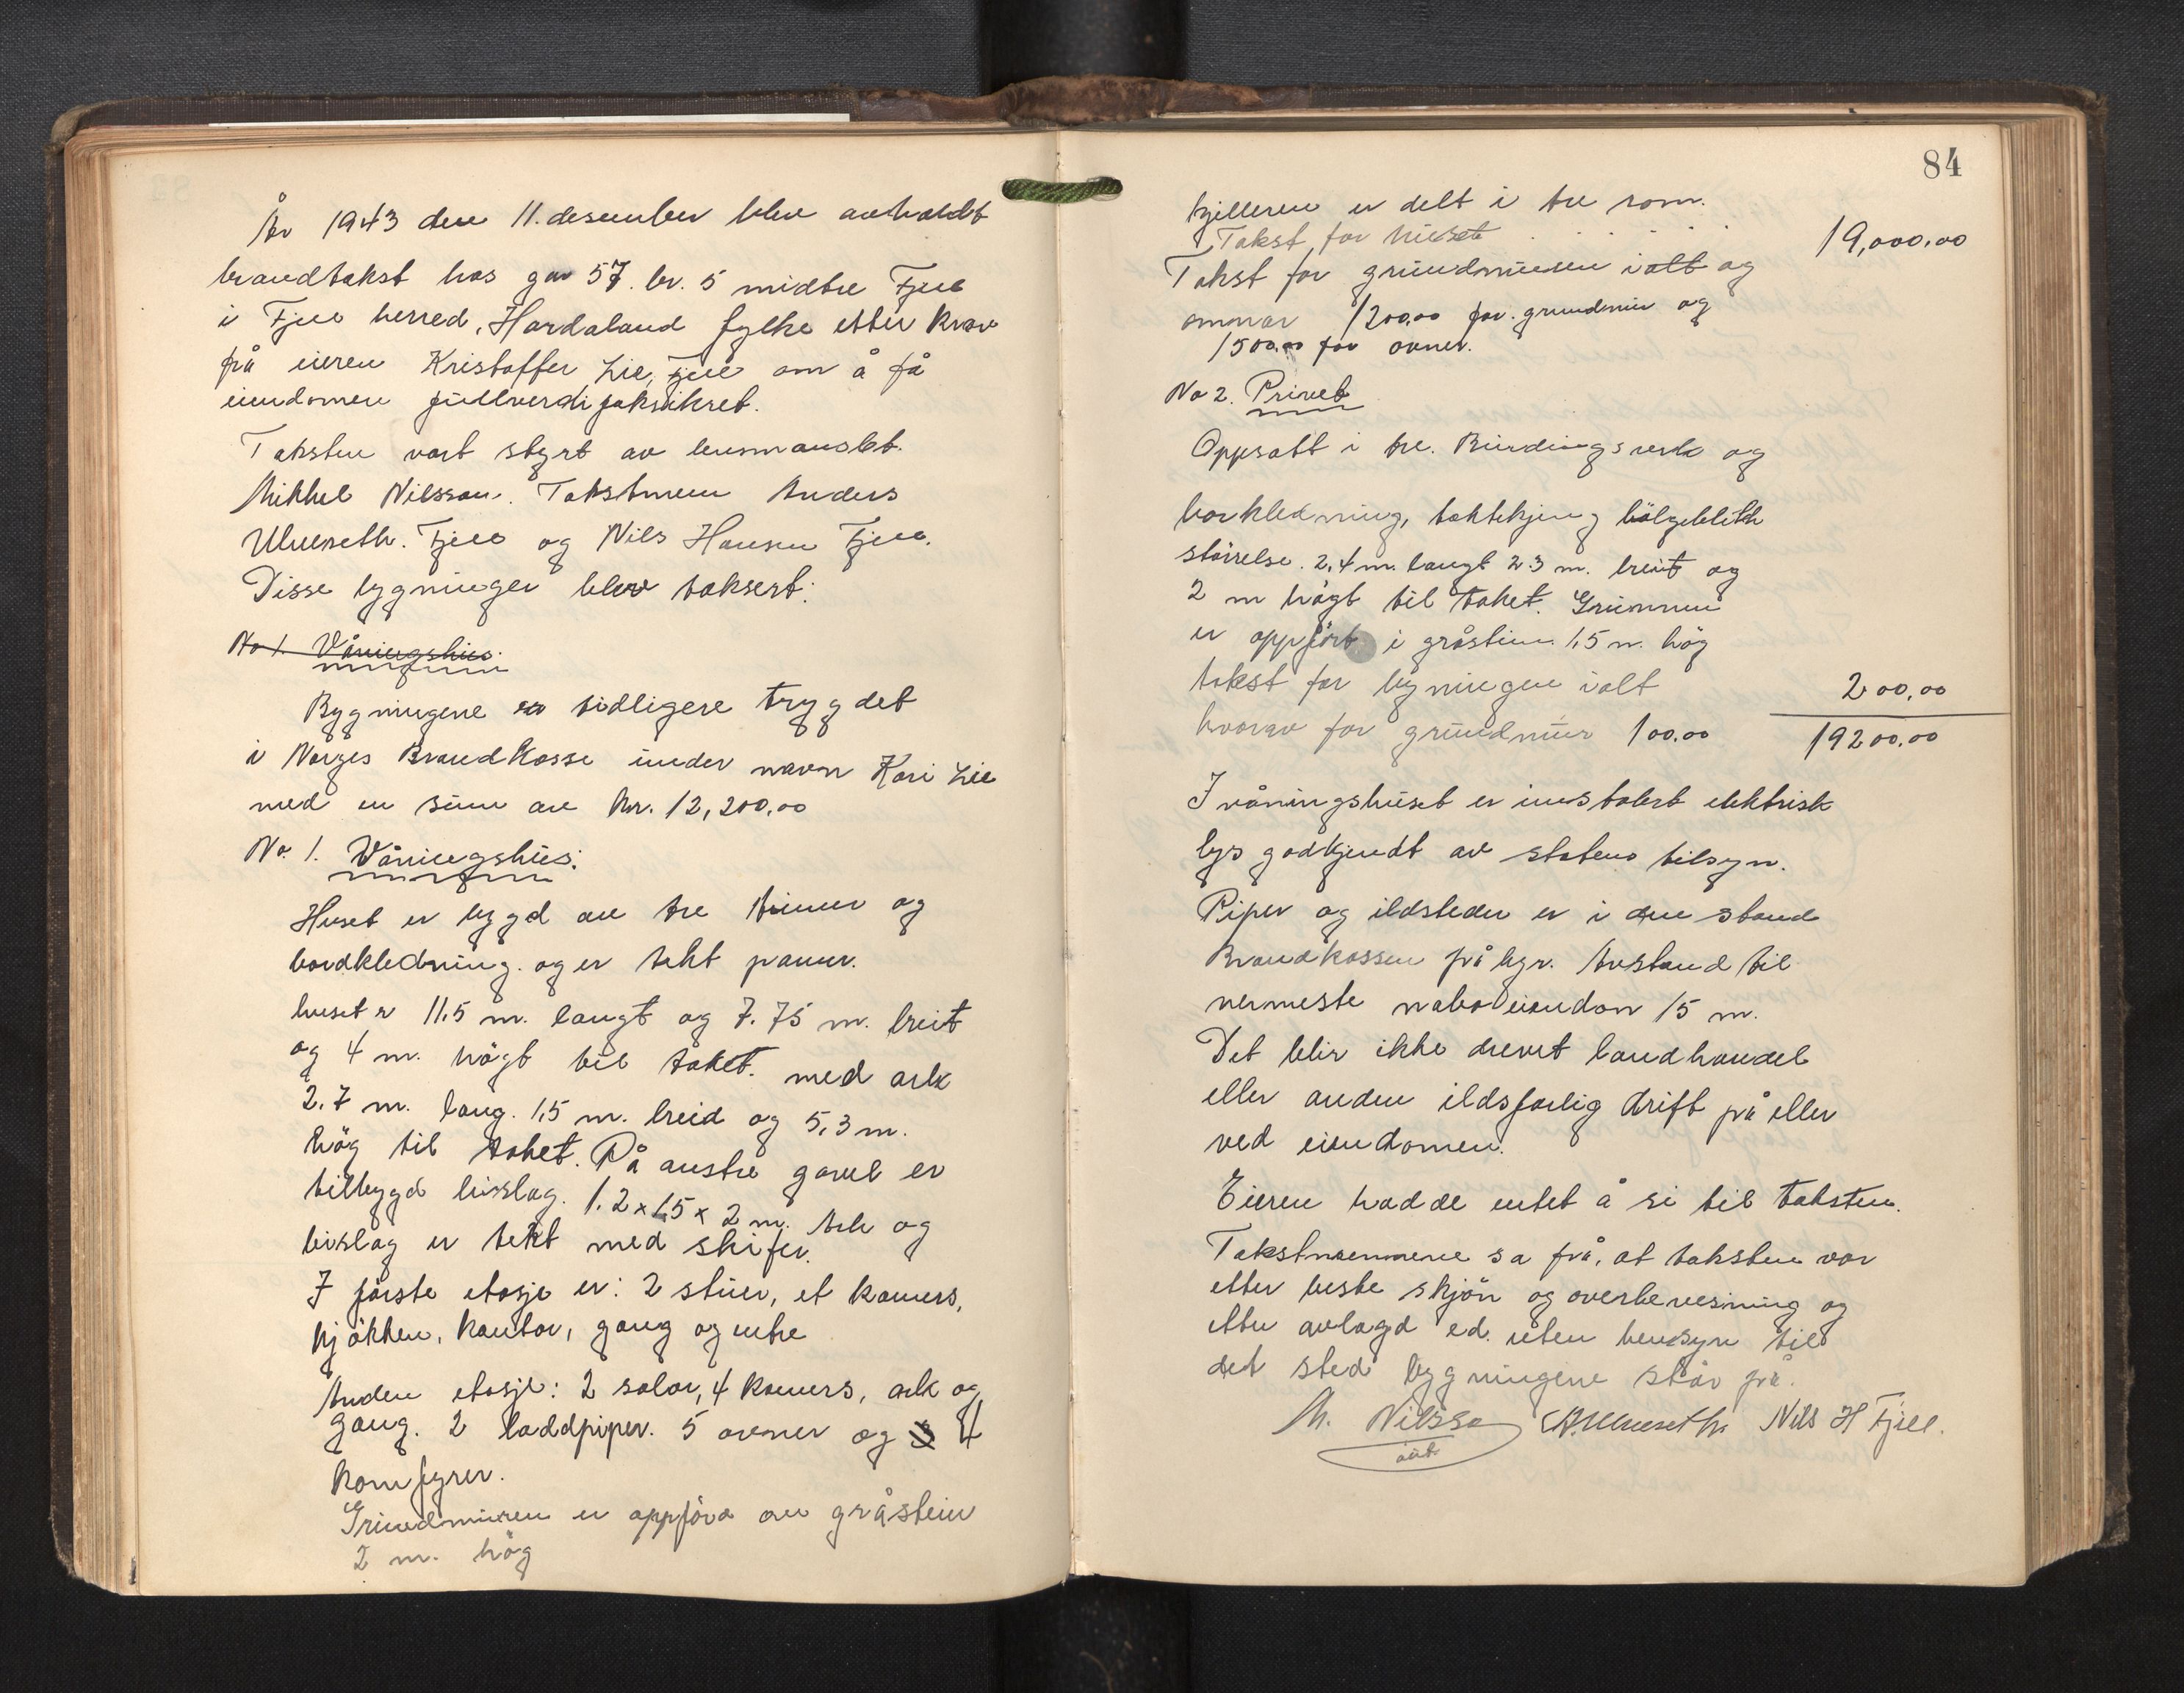 År 1943 den 11. desember blev avholdt
brandtakst hos gar 57. br. 5 midtre Fjell
i Fjell herred, Hordaland fylke etter krav
frå eieren Kristoffer Lie, Fjell om å få
eiendomen fullverdi
Taksten vart styrt av lensmanslet.
Mikkel Nilsson. Takstmenn Anders
Ulveseth. Fjell og Nils Hansen Fjell.
Disse bygninger blev taksert:
No 1. Våningshus.
Bygningene er tidligere trygdet
i Norges Brandkasse under navn Kari Lie
med en sum av kr. 12,200,00
No. 1. Våningshus:
Huset er bygd av tre timer og
bordkledning. og er tekt panner.
huset er 11.5 m. langt og 7.75 m. breit
og 4 m. högt til taket. med ark
2.7 m. lang. 1,5 m. breid og 5,3 m.
hög til taket. På austre gavel er
tilbygd bislag. 1.2 x 1.5 x 2 m. Ark og
bislag er tekt med skifer.
I förste etasje er: 2 stuer, et kamers,
kjökken, kontor, gang og entre
Anden etasje: 2 salar, 4 kamers, ark og
gang. 2 laddpiper. 5 ovner og 3 4
komfyrer.
Grundmuren er oppförd av gråstein
2 m. hög
84
kjelleren er delt i tre rom.
Takst for huset . . . . . 19,000.00
Takst for grundmuren ialt og
ommar 1200.00 for grundmur og
1500.00 for ovner.
No 2. Privet
Oppsatt i tre. Bindingsverk og
borkledning, taktekjing bölgeblikk
störrelse. 2,4 m. langt 2.3 m. breit og
2 m högt til taket. Grunnmuren
er oppfört i gråstein 1,5 m. hög
takst for bygningen ialt 200,00
hvorav for grundmur 100.00 19200.00
I våningshuset er innstalert elektrisk
lys godkjendt av statens tilsyn.
Piper og ildsteder er i den stand
Brandkassen få byr. Avstand til
nermeste nabo eiendom 15 m.
Det blir ikke drevet landhandel
eller anden ildsfarlig drift på eller
ved eiendomen.
Eieren hadde entet å si til taksten.
Takstmennene sa frå, at taksten var
etter beste skjön og overbevisning og
etter avlagd ed. uten hensyn til
det sted bygningene står på.
M. Nilsson A. Ulveseth. Nils H Fjell.
aut.